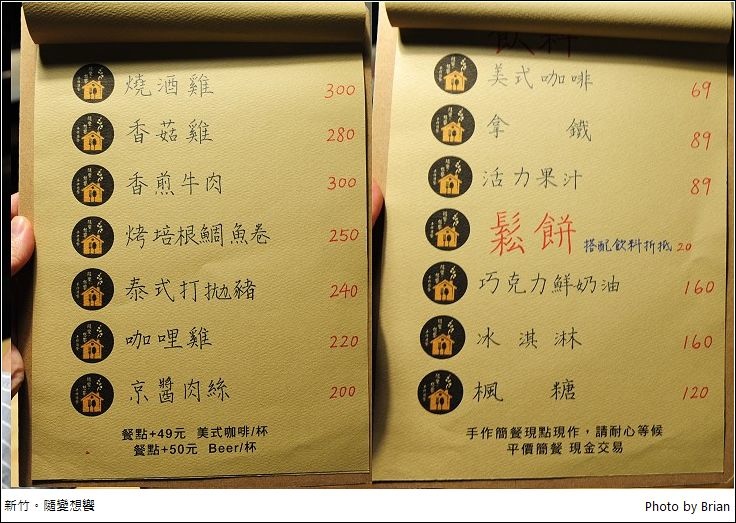 燒酒雞 300
香菇雞 280
香煎牛肉 300
烤培根鯛魚卷 250
泰式打拋豬 240
咖哩雞 220
京醬肉絲 200
餐點+49元 美式咖啡/杯
餐點+50元 Beer/杯
飲料
美式咖啡 69
拿鐵 89
活力果汁 89
鬆餅 搭配飲料折抵20
巧克力鮮奶油 160
冰淇淋 160
楓糖 120
手作簡餐現點現作，請耐心等候
平價簡餐 現金交易
新竹。隨變想饗
Photo by Brian